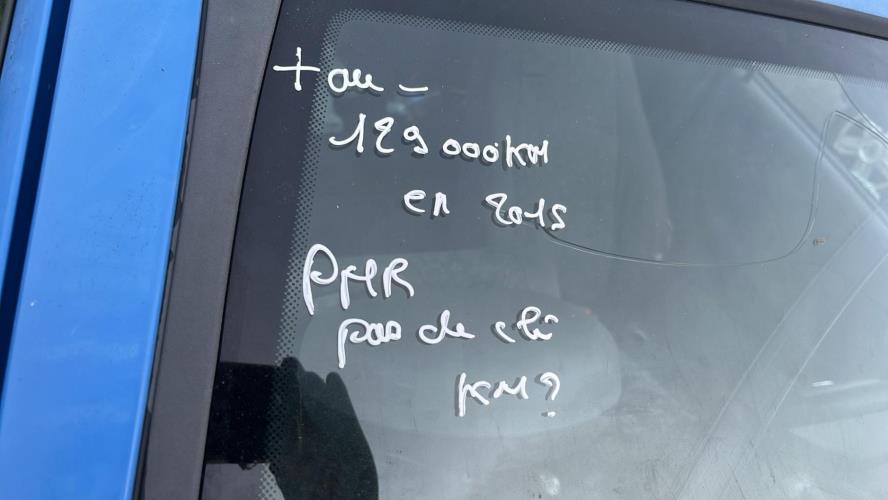 + ou -
129 000 KM
en 2015
PMR
pas de clé
KM ?